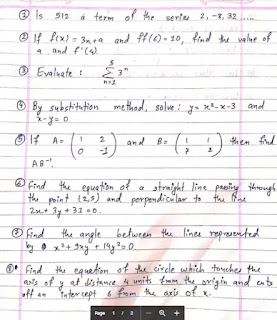 ① Is 512 a term of the series 2, -8, 32 .....
② If f(x) = 3x+a and ff(6) = 10, find the value of
a and f'(4).
③ Evaluate : 5 Σ 3ⁿ n=1
④ By substitution method, solve : y = x²-x-3 and
x-y=0
⑤ If A = ( 1 2 0 -1 ) and B = ( 1 1 7 2 ) then find
AB⁻¹.
⑥ Find the equation of a straight line passing through
the point (2,5) and perpendicular to the line
2x + 3y + 31 = 0.
⑦ Find the angle between the lines represented
by x² + 9xy + 14y² = 0.
⑧ Find the equation of the circle which touches the
axis of y at distance 4 units from the origin and cuts
off an intercept 6 from the axis of x.
Page 1 / 2 - +